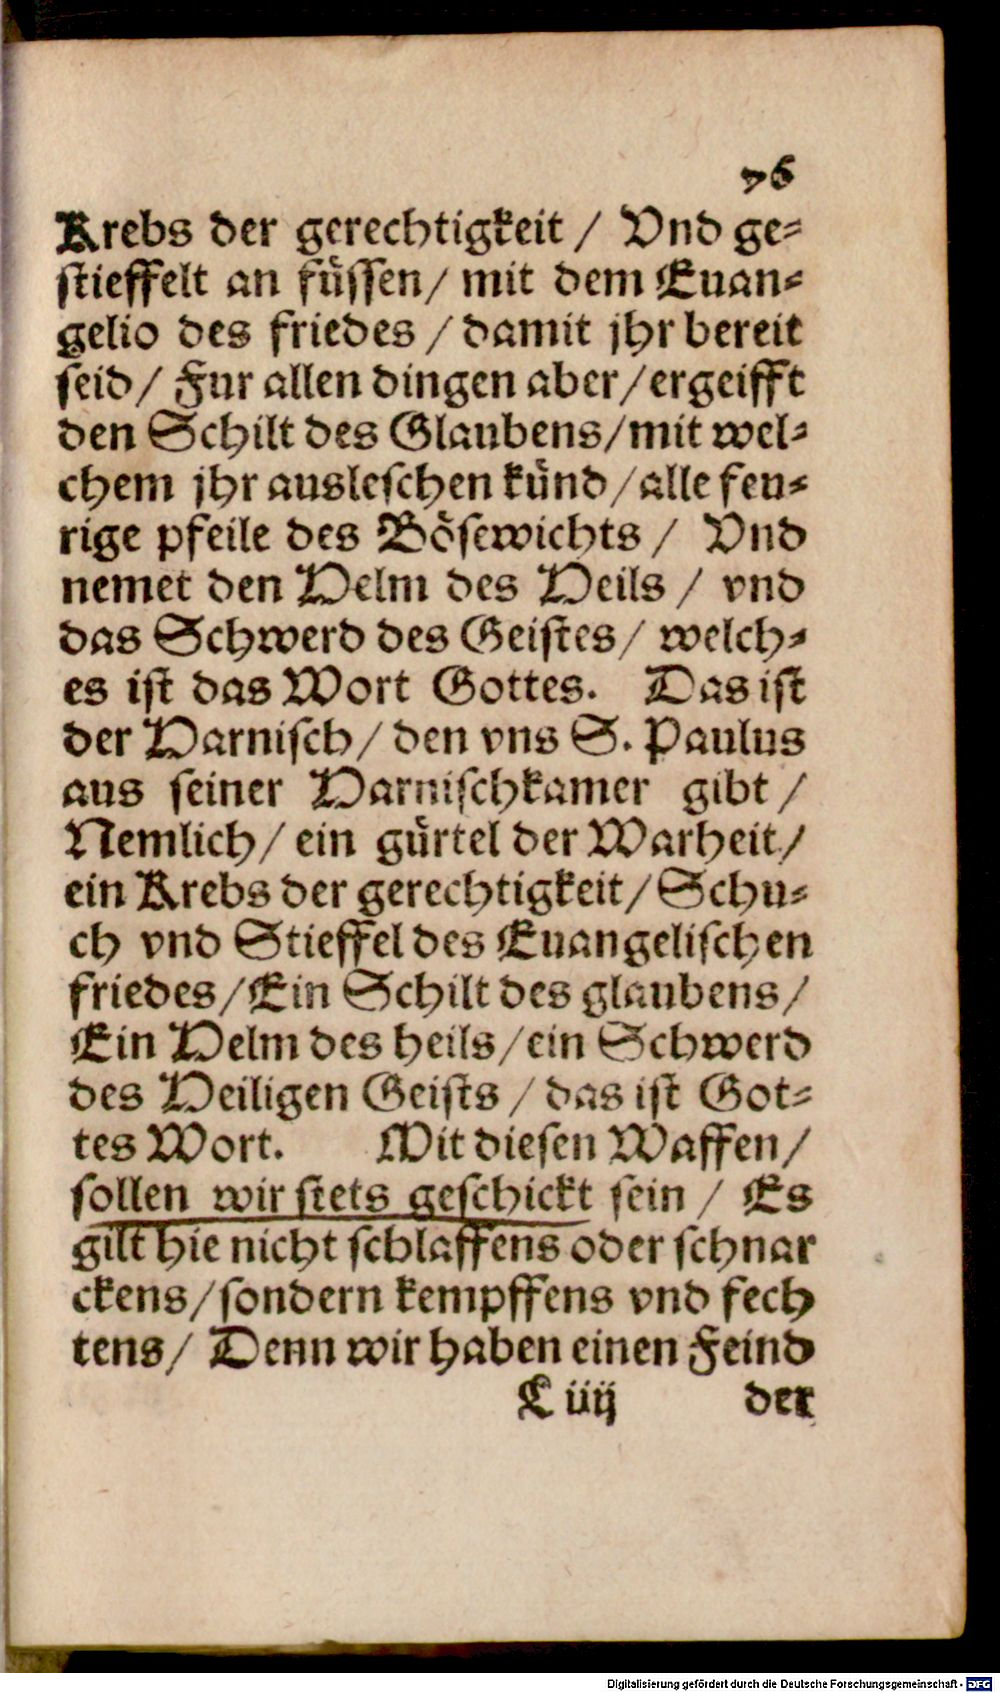 76
Krebs der gerechtigkeit / Vnd ge-
stieffelt an füssen / mit dem Euan-
gelio des friedes / damit jhr bereit
seid / Fur allen dingen aber / ergeifft
den Schilt des Glaubens / mit wel-
chem jhr ausleschen künd / alle feu-
rige pfeile des Bösewichts / Vnd
nemet den Helm des Heils / vnd
das Schwerd des Geistes / welch-
es ist das Wort Gottes. Das ist
der Harnisch / den vns S. Paulus
aus seiner Harnischkamer gibt /
Nemlich / ein gürtel der Warheit /
ein Krebs der gerechtigkeit / Schu-
ch vnd Stieffel des Euangelischen
friedes / Ein Schilt des glaubens /
Ein Helm des heils / ein Schwerd
des Heiligen Geists / das ist Got-
tes Wort. Mit diesen Waffen /
sollen wir stets geschickt sein / Es
gilt hie nicht schlaffens oder schnar
ckens / sondern kempffens vnd fech
tens / Denn wir haben einen Feind
L iiij der
Digitalisierung gefördert durch die Deutsche Forschungsgemeinschaft - DFG